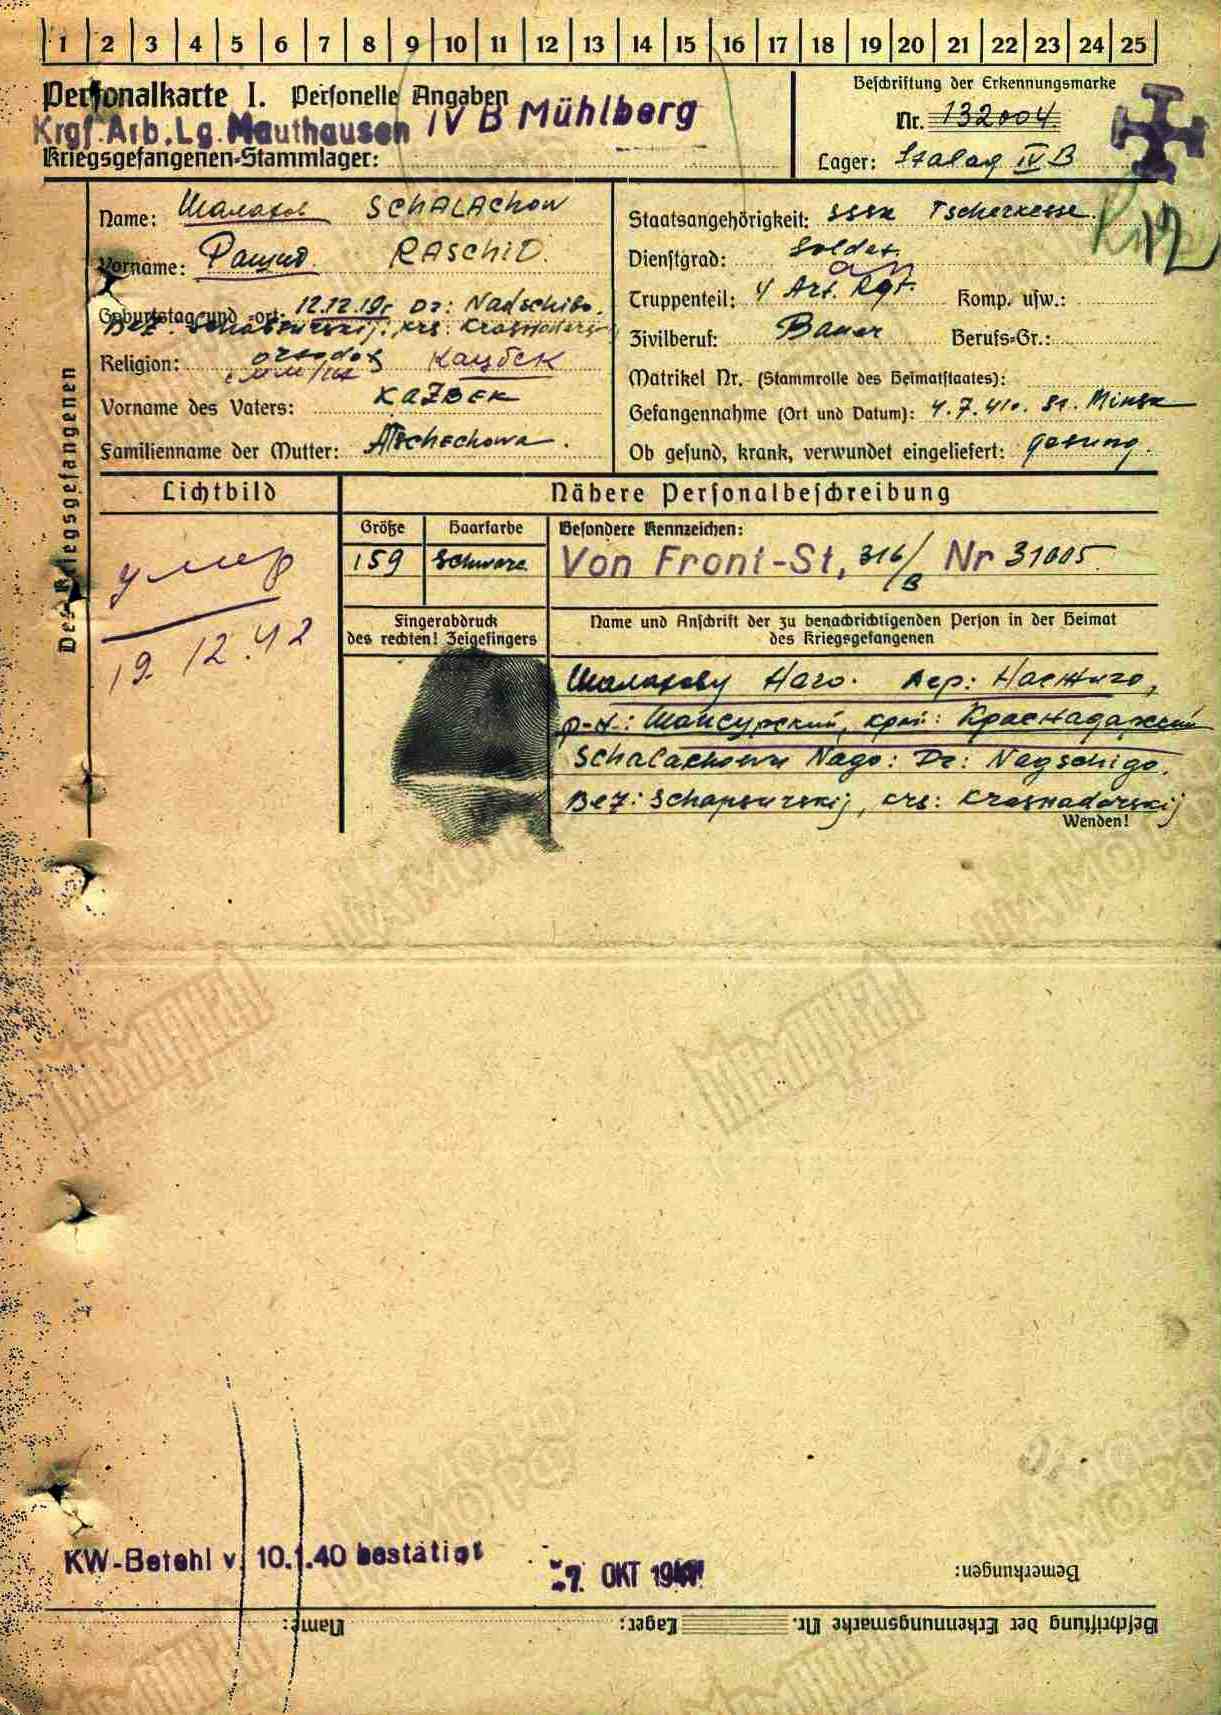 1 2 3 4 5 6 7 8 9 10 11 12 13 14 15 16 17 18 19 20 21 22 23 24 25
Personalkarte I. Personelle Angaben
Krgf. Arb. Lg. Mauthausen IV B Mühlberg
Kriegsgefangenen-Stammlager:
Beschriftung der Erkennungsmarke
Nr. 132004
Lager: Stalag IV B
Des Kriegsgefangenen
Name: Шалахов SCHALACHOW
Vorname: Рашид RASCHID.
Geburtstag und -ort: 12.12.19 Dr: Nadschibo.
Bez. krs: Krasnadarsk
Religion: Казбек
Vorname des Vaters: KAZBEK
Familienname der Mutter: Atschechowa.
Staatsangehörigkeit: SSSR Tscherkesse.
Dienstgrad: Soldat.
Truppenteil: 4 Art. Rgt. Komp. usw.:
Zivilberuf: Bauer Berufs-Gr.:
Matrikel Nr. (Stammrolle des Heimatstaates):
Gefangennahme (Ort und Datum): 4.7.41. St. Minsk
Ob gesund, krank, verwundet eingeliefert: gesund.
12
Lichtbild
умер
19.12.42
Nähere Personalbeschreibung
Größe Haarfarbe Besondere Kennzeichen:
159 Schwarz Von Front-St, 316/B Nr 31005
Fingerabdruck
des rechten! Zeigefingers
Name und Anschrift der zu benachrichtigenden Person in der Heimat
des Kriegsgefangenen
Шалахову Наго. дер: Наежиго,
р-н: Шапсурский, край: Краснадарский
Schalachowu Nago: Dr: Nagschigo.
Bez: Schapsurskij, krs: Krasnadarskij
Wenden!
KW-Befehl v. 10.1.40 bestätigt
7. OKT 1941
Bemerkungen:
Beschriftung der Erkennungsmarke Nr. Lager: Name: